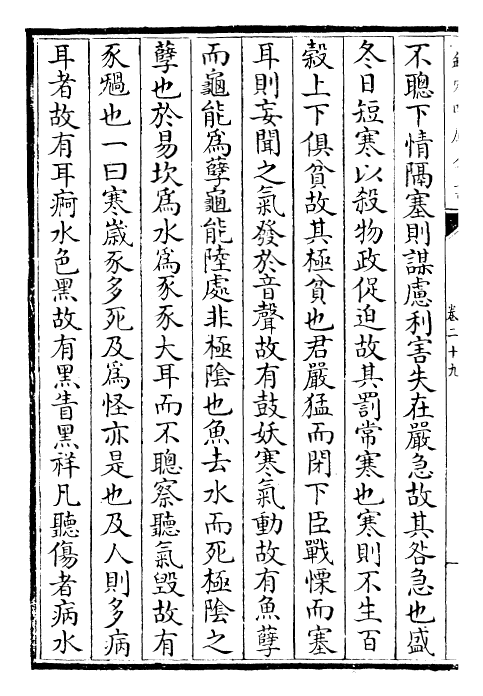 不聰下情隔塞則謀慮利害失在嚴急故其咎急也盛
冬日短寒以殺物政促迫故其罰常寒也寒則不生百
糓上下俱貧故其極貧也君嚴猛而閉下臣戰慄而塞
耳則妄聞之氣發於音聲故有鼓妖寒氣動故有魚孽
而龜能為孽龜能陸處非極陰也魚去水而死極陰之
孽也於易坎為水為豕豕大耳而不聰察聽氣毀故有
豕禍也一曰寒嵗豕多死及為怪亦是也及人則多病
耳者故有耳痾水色黑故有黑眚黑祥凡聽傷者病水
卷二十九